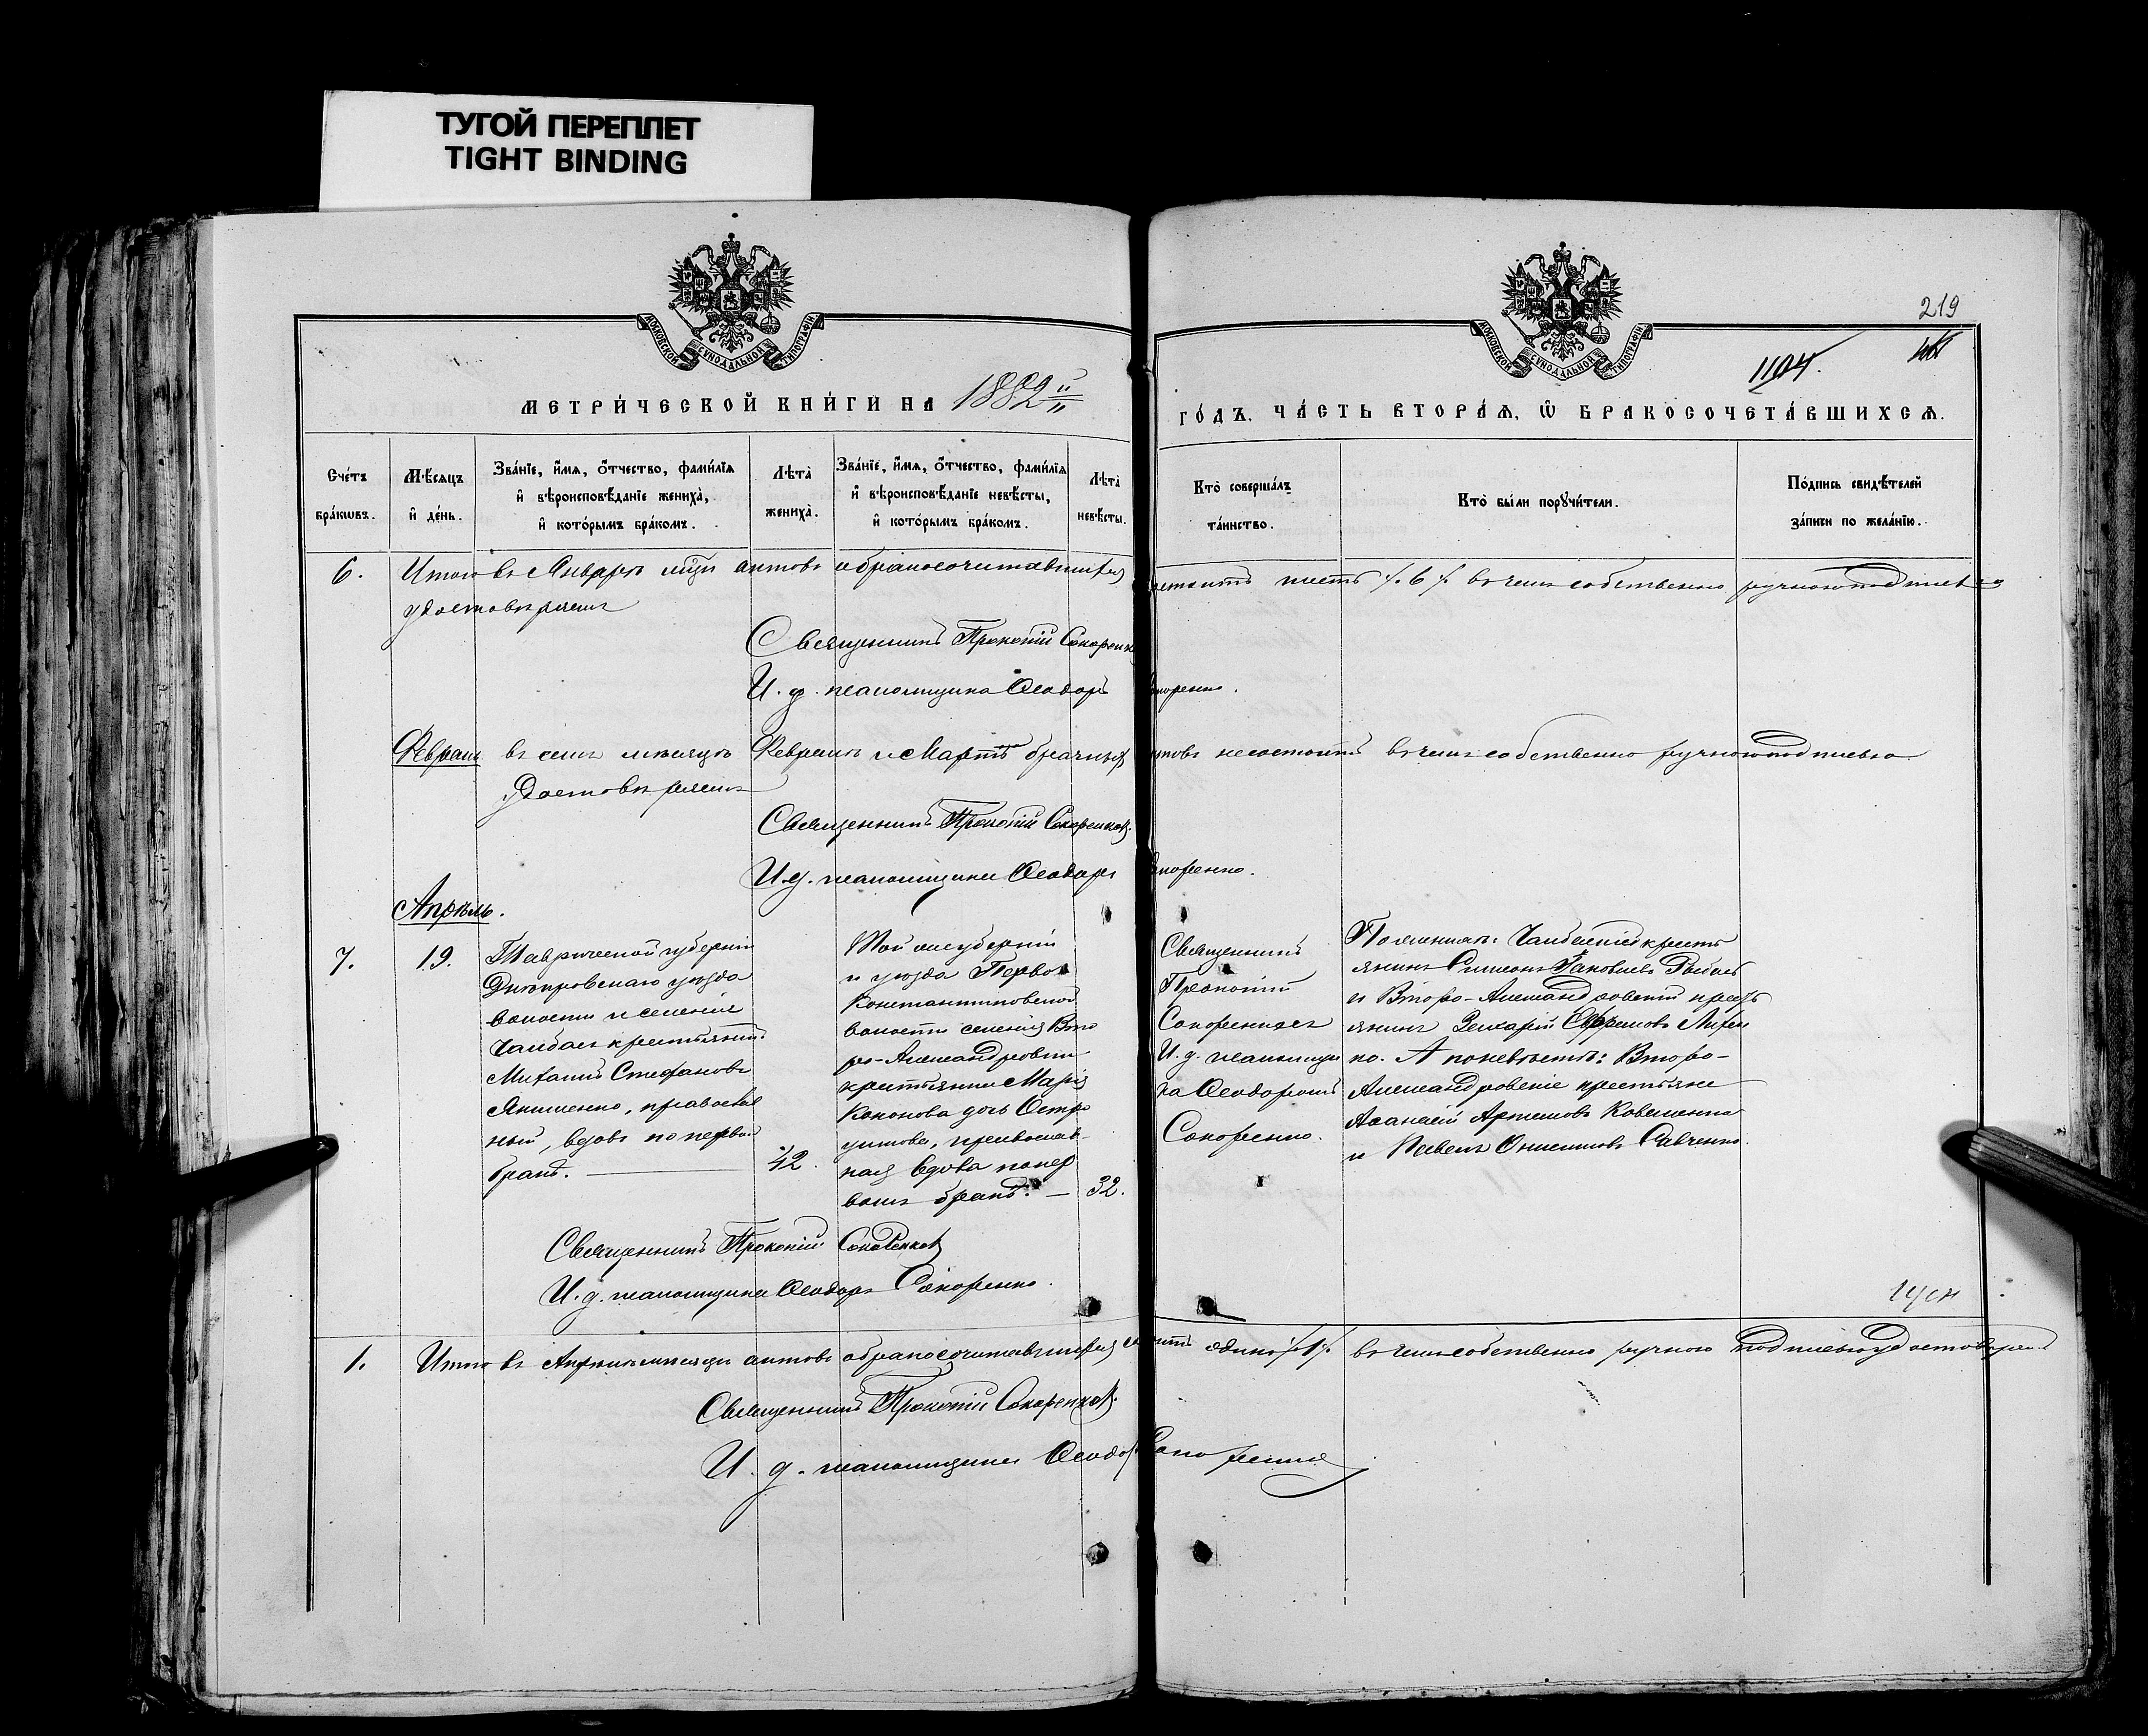 ТУГОЙ ПЕРЕПЛЕТ
TIGHT BINDING
МОСКОВСКОЙ СѴНОДАЛЬНОЙ ТИПОГРАФІИ
МОСКОВСКОЙ СѴНОДАЛЬНОЙ ТИПОГРАФІИ
219
1104.
МЕТРИ́ЧЕСКОЙ КНИ́ГИ НА 1882 ГО́ДЪ. ЧА́СТЬ ВТОРА́Ѧ, Ѡ҆ БРАКОСОЧЕТА́ВШИХСѦ.
Сче́тъ
бра́кѡвъ.
Мѣ́сѧцъ
и҆ де́нь.
Зва́нїе, и҆́мѧ, ѻ҆́тчество, фами́лїѧ
и҆ вѣроисповѣ́данїе жениха̀,
и҆ кото́рымъ бра́комъ.
Лѣта̀
жениха̀.
Зва́нїе, и҆́мѧ, ѻ҆́тчество, фами́лїѧ
и҆ вѣроисповѣ́данїе невѣ́сты,
и҆ кото́рымъ бра́комъ.
Лѣта̀
невѣ́сты.
Кто̀ соверша́лъ
та́инство.
Кто̀ бы́ли порꙋчи́тели.
По́дпись свидѣ́телей
за́писи по жела́нїю.
6. Итого въ Январѣ мцѣ актовъ о бракосочитавшихся состоитъ шесть /. 6 /. въ чемъ собственно ручною подписью
удостовѣряемъ
Священникъ Прокопій Сокоренковъ
И. д. псаломщика Ѳеодоръ Сокоренко.
Февраль въ семъ мѣсяцѣ Февралѣ и Мартѣ брачныхъ актовъ несостоитъ въ чемъ собственно ручною подписью
удостовѣряемъ
Священникъ Прокопій Сокоренковъ.
И. д. псаломщика Ѳеодоръ Сокоренко.
Апрѣль.
7.
19.
Таврической губерніи
Днѣпровскаго уѣзда
волости и селенія
Чалбасъ крестьянинъ
Михаилъ Стефановъ
Якименко, православ
ный, вдовъ по первом
бракѣ.
42.
Той же губерніи
и уѣзда Перво
Константиновской
волости селенія Вто
ро-Александровки
крестьянка Марія
Кононова дочь Остро
ушкова, православ
ная вдова по пер
вомъ бракѣ. —
32.
Священникъ
Прокопій
Сокоренковъ
И. д. псаломщи
ка Ѳеодоромъ
Сокоренко.
По женихѣ: Чалбаскій кресть
янинъ Симеонъ Яковлевъ
и Второ-Александровскій кресть
янинъ Захарій Ефремовъ
ко. А по невѣстѣ: Второ-
Александровскіе крестьяне
Аѳанасій Артемовъ Коваленко
и Павелъ Онисимовъ Савченко.
Священникъ Прокопій Сокоренковъ
И. д. псаломщика Ѳеодоръ Сокоренко.
1. Итого въ Апрѣлѣ мѣсяцѣ актовъ о бракосочитавшихся состоитъ одинъ /. 1 /. въ чемъ собственно ручною подписью удостовѣряемъ
Священникъ Прокопій Сокоренковъ.
И. д. псаломщика Ѳеодоръ Сокоренко